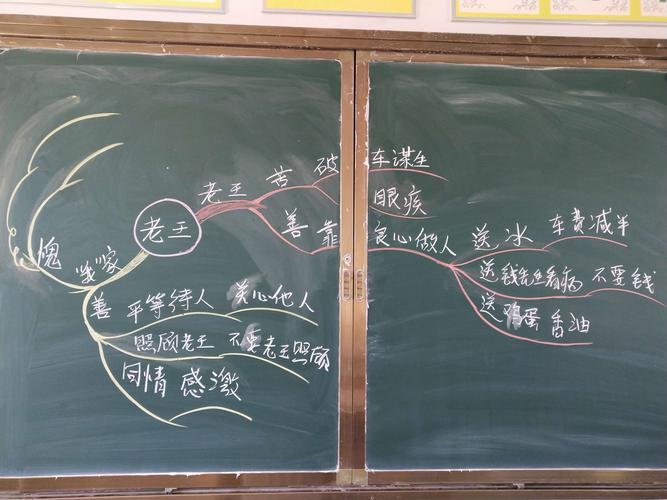 老王
老王
苦 破车谋生
眼疾
善 靠良心做人
送冰 车费减半
送钱先生看病 不要钱
送鸡蛋香油
我家
愧
善 平等待人 关心他人
照顾老王 不要老王照顾
同情 感激